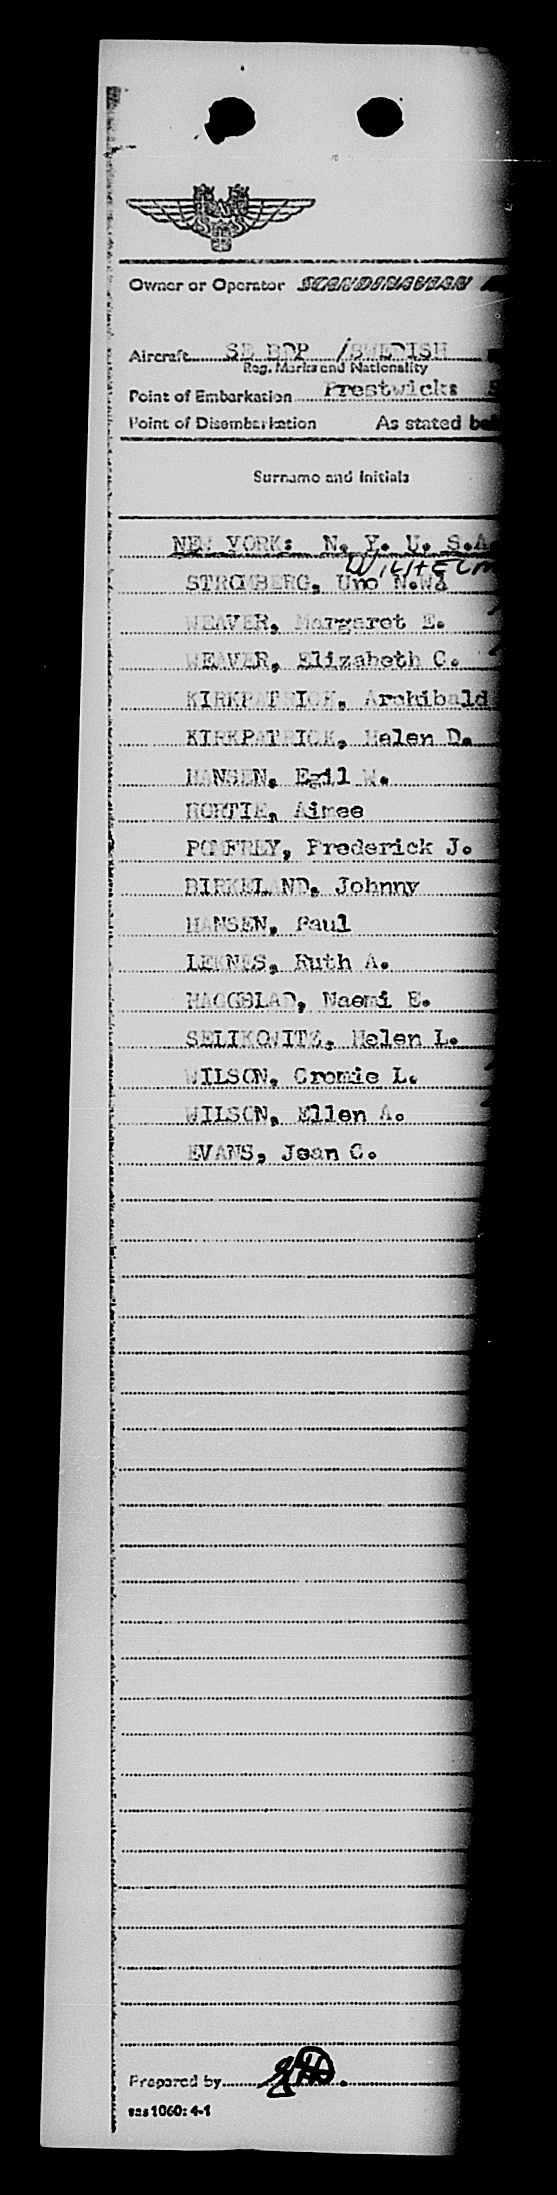 Owner or Operator SCANDINAVIAN
Aircraft SE BDP /SWEDISH
Reg. Marks and Nationality
Point of Embarkation Prestwick:
Point of Disembarkation As stated
Surname and Initials
NEW YORK: N. Y. U. S.A.
WILHELM
STROMBERG, Uno N.W.
WEAVER, Margaret E.
WEAVER, Elizabeth C.
KIRKPATRICK, Archibald
KIRKPATRICK, Helen D.
HANSEN, Egil W.
HORTIE, Aimee
POMFREY, Frederick J.
BIRKELAND, Johnny
HANSEN, Paul
LEKNES, Ruth A.
HAGGBLAD, Naemi E.
SELIKOWITZ, Helen L.
WILSON, Cromie L.
WILSON, Ellen A.
EVANS, Jean C.
Prepared by
sas 1060: 4-1